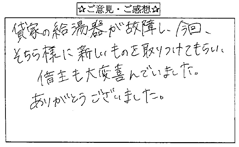 ☆ご意見・ご感想☆
貸家の給湯器が故障し、今回、
そちら様に新しいものを取りつけてもらい、
借主も大変喜んでいました。
ありがとうございました。